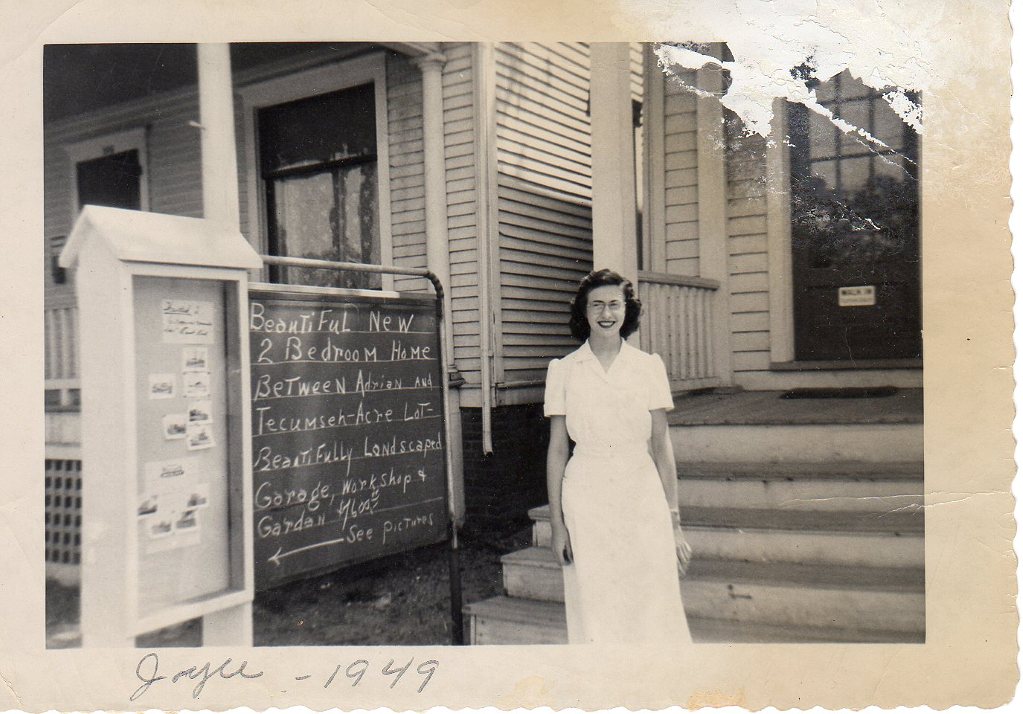 Beautiful New
2 Bedroom Home
Between Adrian and
Tecumseh-Acre Lot-
Beautifully Landscaped
Garage, Workshop &
Gardan
← See pictures
WALK IN
Joyce - 1949